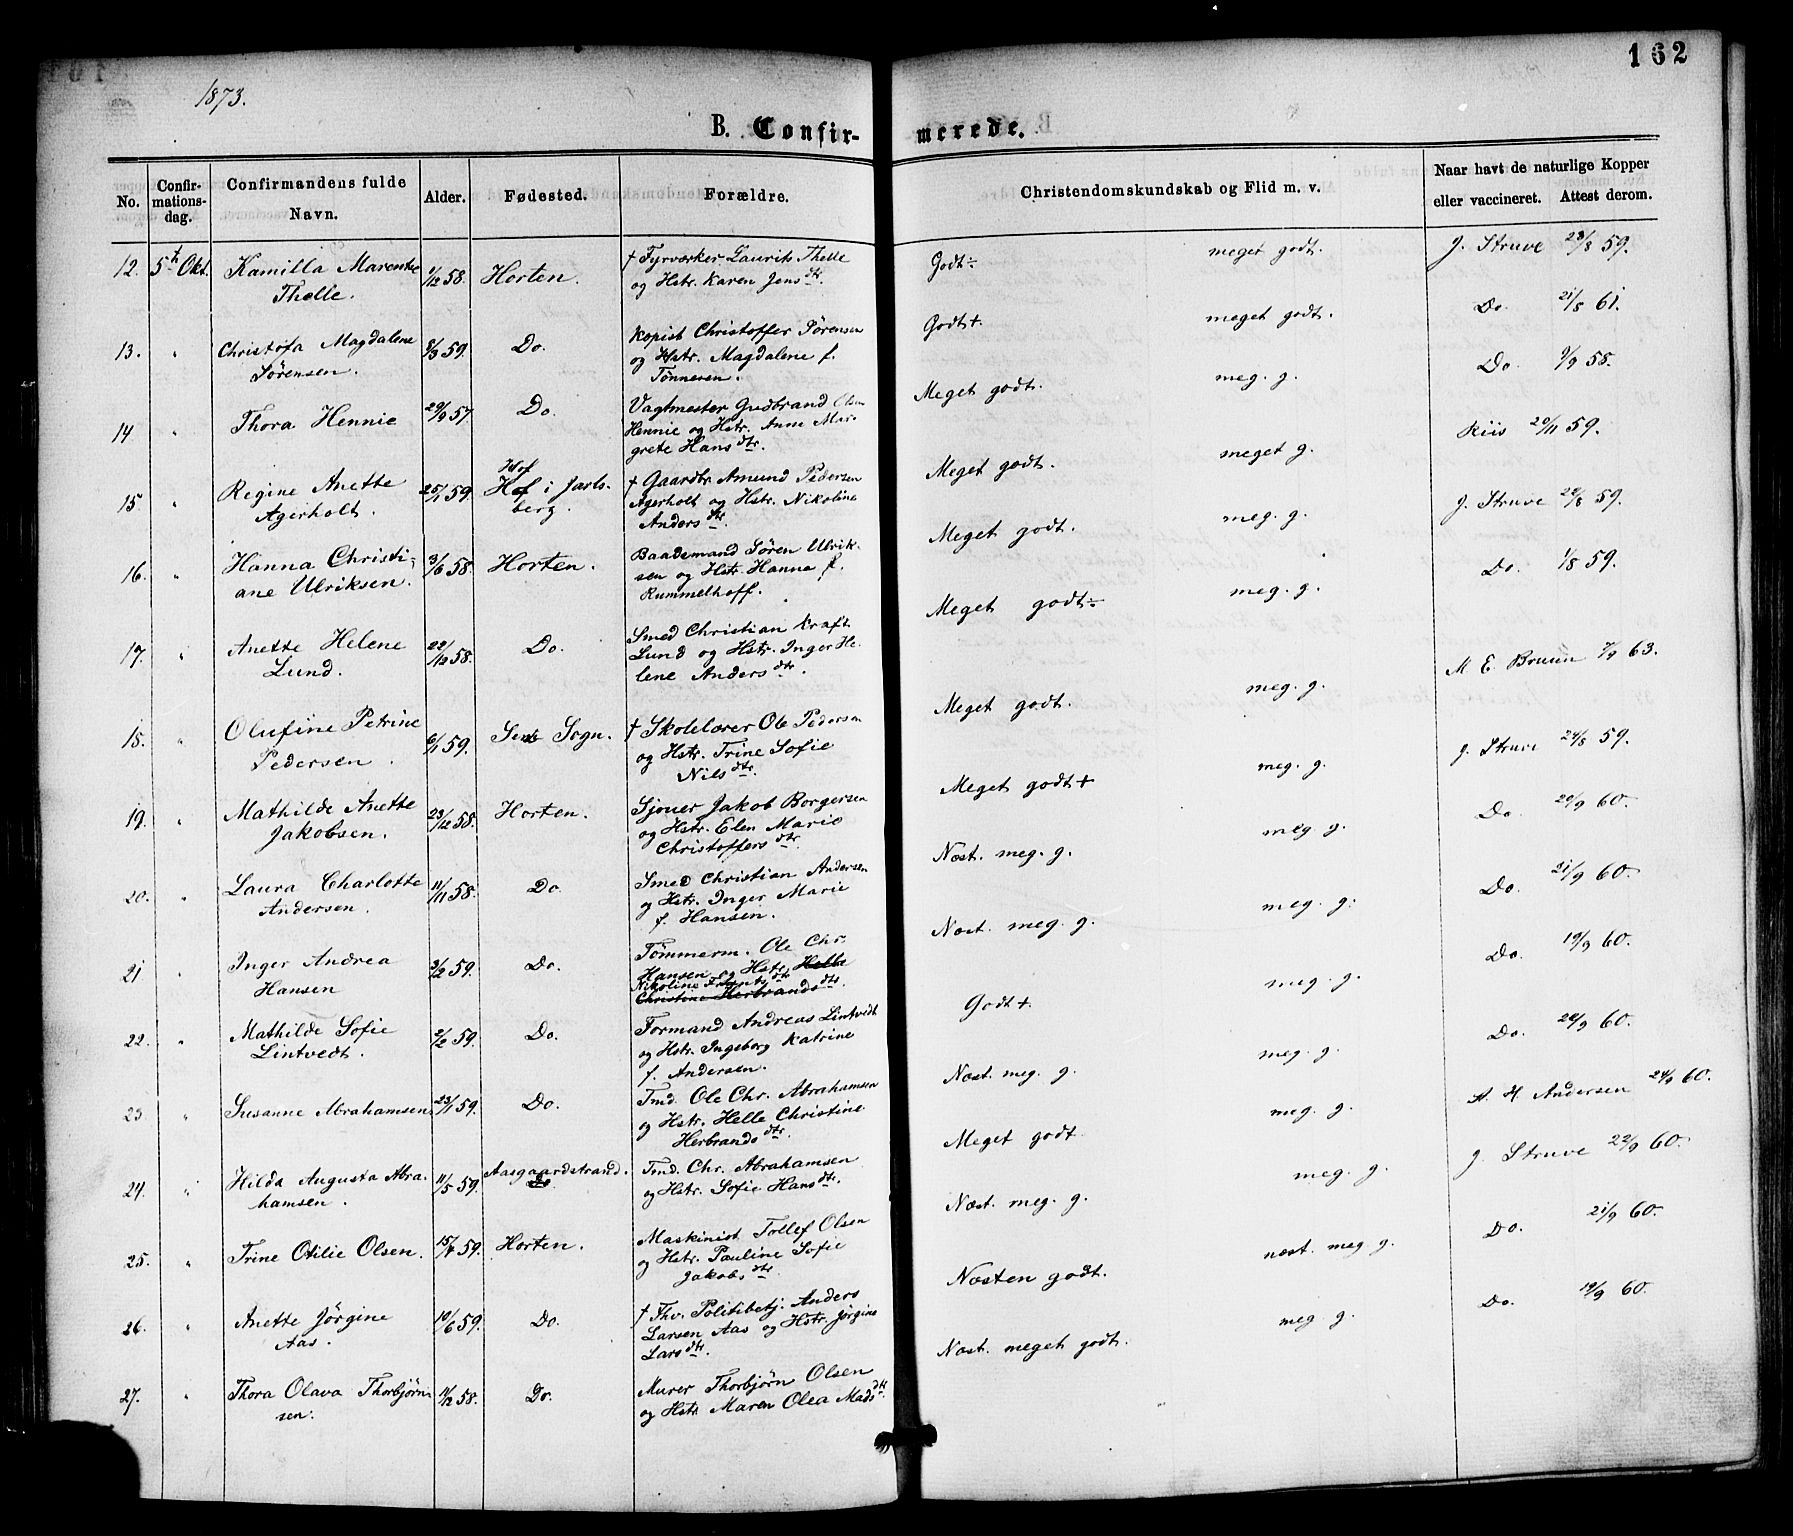 162
1873.
B. Confir-merede.
No.
Confir-
mations-
dag.
Confirmandens fulde
Navn.
Alder.
Fødested.
Forældre.
Christendomskundskab og Flid m. v.
Naar havt de naturlige Kopper
eller vaccineret. Attest derom.
12. 5th Okt. Kamilla Marentke 1/12 58. Horten. † Fyrværker Laurits Thelle Godt÷ meget godt. J. Struve 23/8 59.
Thelle. og Hstr. Karen Jensdtr.
13. " Christofa Magdalene 8/9 59. Do. Kopist Christoffer Sörensen Godt+ meget godt. Do. 21/8 61.
Sörensen. og Hstr. Magdalene f.
Tönnesen.
14 " Thora Hennie 29/9 57. Do. Vagtmester Gudbrand Olsen Meget godt. meg. g. Do. 9/9 58.
Hennie og Hstr. Anne Mar-
grete Hansdtr.
15 " Regine Anette 25/1 59. Hof Hof i Jarls- † Gaardbr. Amund Pedersen Meget godt. meget g. Kiis 20/11 59.
Agerholt. berg. Agerholt og Hstr. Nikoline
Andersdtr.
16. " Hanna Christi- 3/6 58. Horten. Baademand Sören Ulrik- Meget godt. meg. g. J. Struve 24/8 59.
ane Ulriksen. sen og Hstr. Hanna f.
Rummelhoff.
17. " Anette Helene 22/12 58. Do. Smed Christian Kraft Meget godt÷ meg. g. Do. 1/8 59.
Lund. Lund og Hstr. Inger He-
lene Andersdtr.
18. " Olufine Petrine 6/1 59. Sems Sogn. † Skolelærer Ole Pedersen Meget godt. meg. g. M E. Bruun 7/9 63.
Pedersen. og Hstr. Trine Sofie
Nilsdtr.
19. " Mathilde Anette 23/12 58. Horten. Sjouer Jakob Borgersen Meget godt+ meg. g. J. Struve 24/8 59.
Jakobsen. og Hstr. Elen Marie
Christoffersdtr.
20. " Laura Charlotte 11/11 58. Do. Smed Christian Andersen Næst. meg. g. meg. g. Do. 20/9 60.
Andersen. og Hstr. Inger Marie
f. Hansen.
21 " Inger Andrea 2/2 59. Do. Tömmerm. Ole Chr. Næst. meg. g. meg. g. Do. 21/9 60.
Hansen Hansen og Hstr. Helle
Nikoline Frantsdtr
Christine Herbrandsdtr.
22. " Mathilde Sofie 2/2 59. Do. Formand Andreas Lintvedt Godt+ meg. g. Do. 19/9 60.
Lintvedt. og Hstr. Ingeborg Katrine
f. Andersen.
23 " Susanne Abrahamsen 23/1 59. Do. Tmd. Ole Chr. Abrahamsen Næst. meg. g. meg. g. Do. 20/9 60.
og Hstr. Helle Christine
Herbrandsdtr.
24. " Hilda Augusta Abra- 11/5 59. Aasgaardstrand. Tmd. Chr. Abrahamsen Meget godt meg. g. A. H. Andersen 24/9 60.
hamsen. Do og Hstr. Sofie Hansdtr.
25. " Trine Otilie Olsen. 15/7 59. Horten. Maskinist Tollef Olsen Næst. meg. g. meg. g. J. Struve 22/9 60.
og Hstr. Pauline Sofie
Jakobsdtr.
26. " Anette Jörgine 10/6 59. Do. † Fhv. Politibetj. Anders Næsten godt. næst. meg. g. Do. 21/9 60.
Aas. Larsen Aas og Hstr. Jörgine
Larsdtr.
27. " Thora Olava Thorbjörn- 11/12 58. Do. Murer Thorbjörn Olsen Næst. meget godt. meg. g. Do. 19/9 60.
sen. og Hstr. Maren Olea Madsdtr.